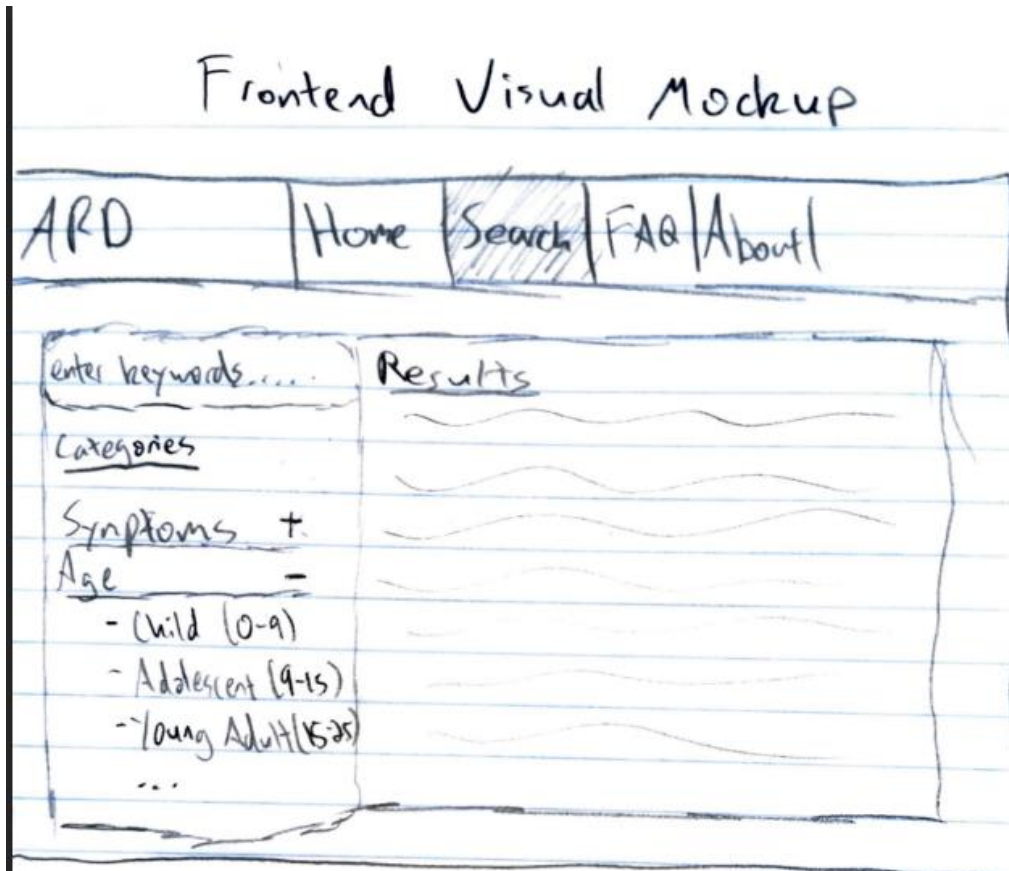 Frontend Visual Mockup
ARD Home Search FAQ About
enter keywords.....
Results
Categories
Symptoms +
Age -
- Child (0-9)
- Adolescent (9-15)
- Young Adult (15-25)
...